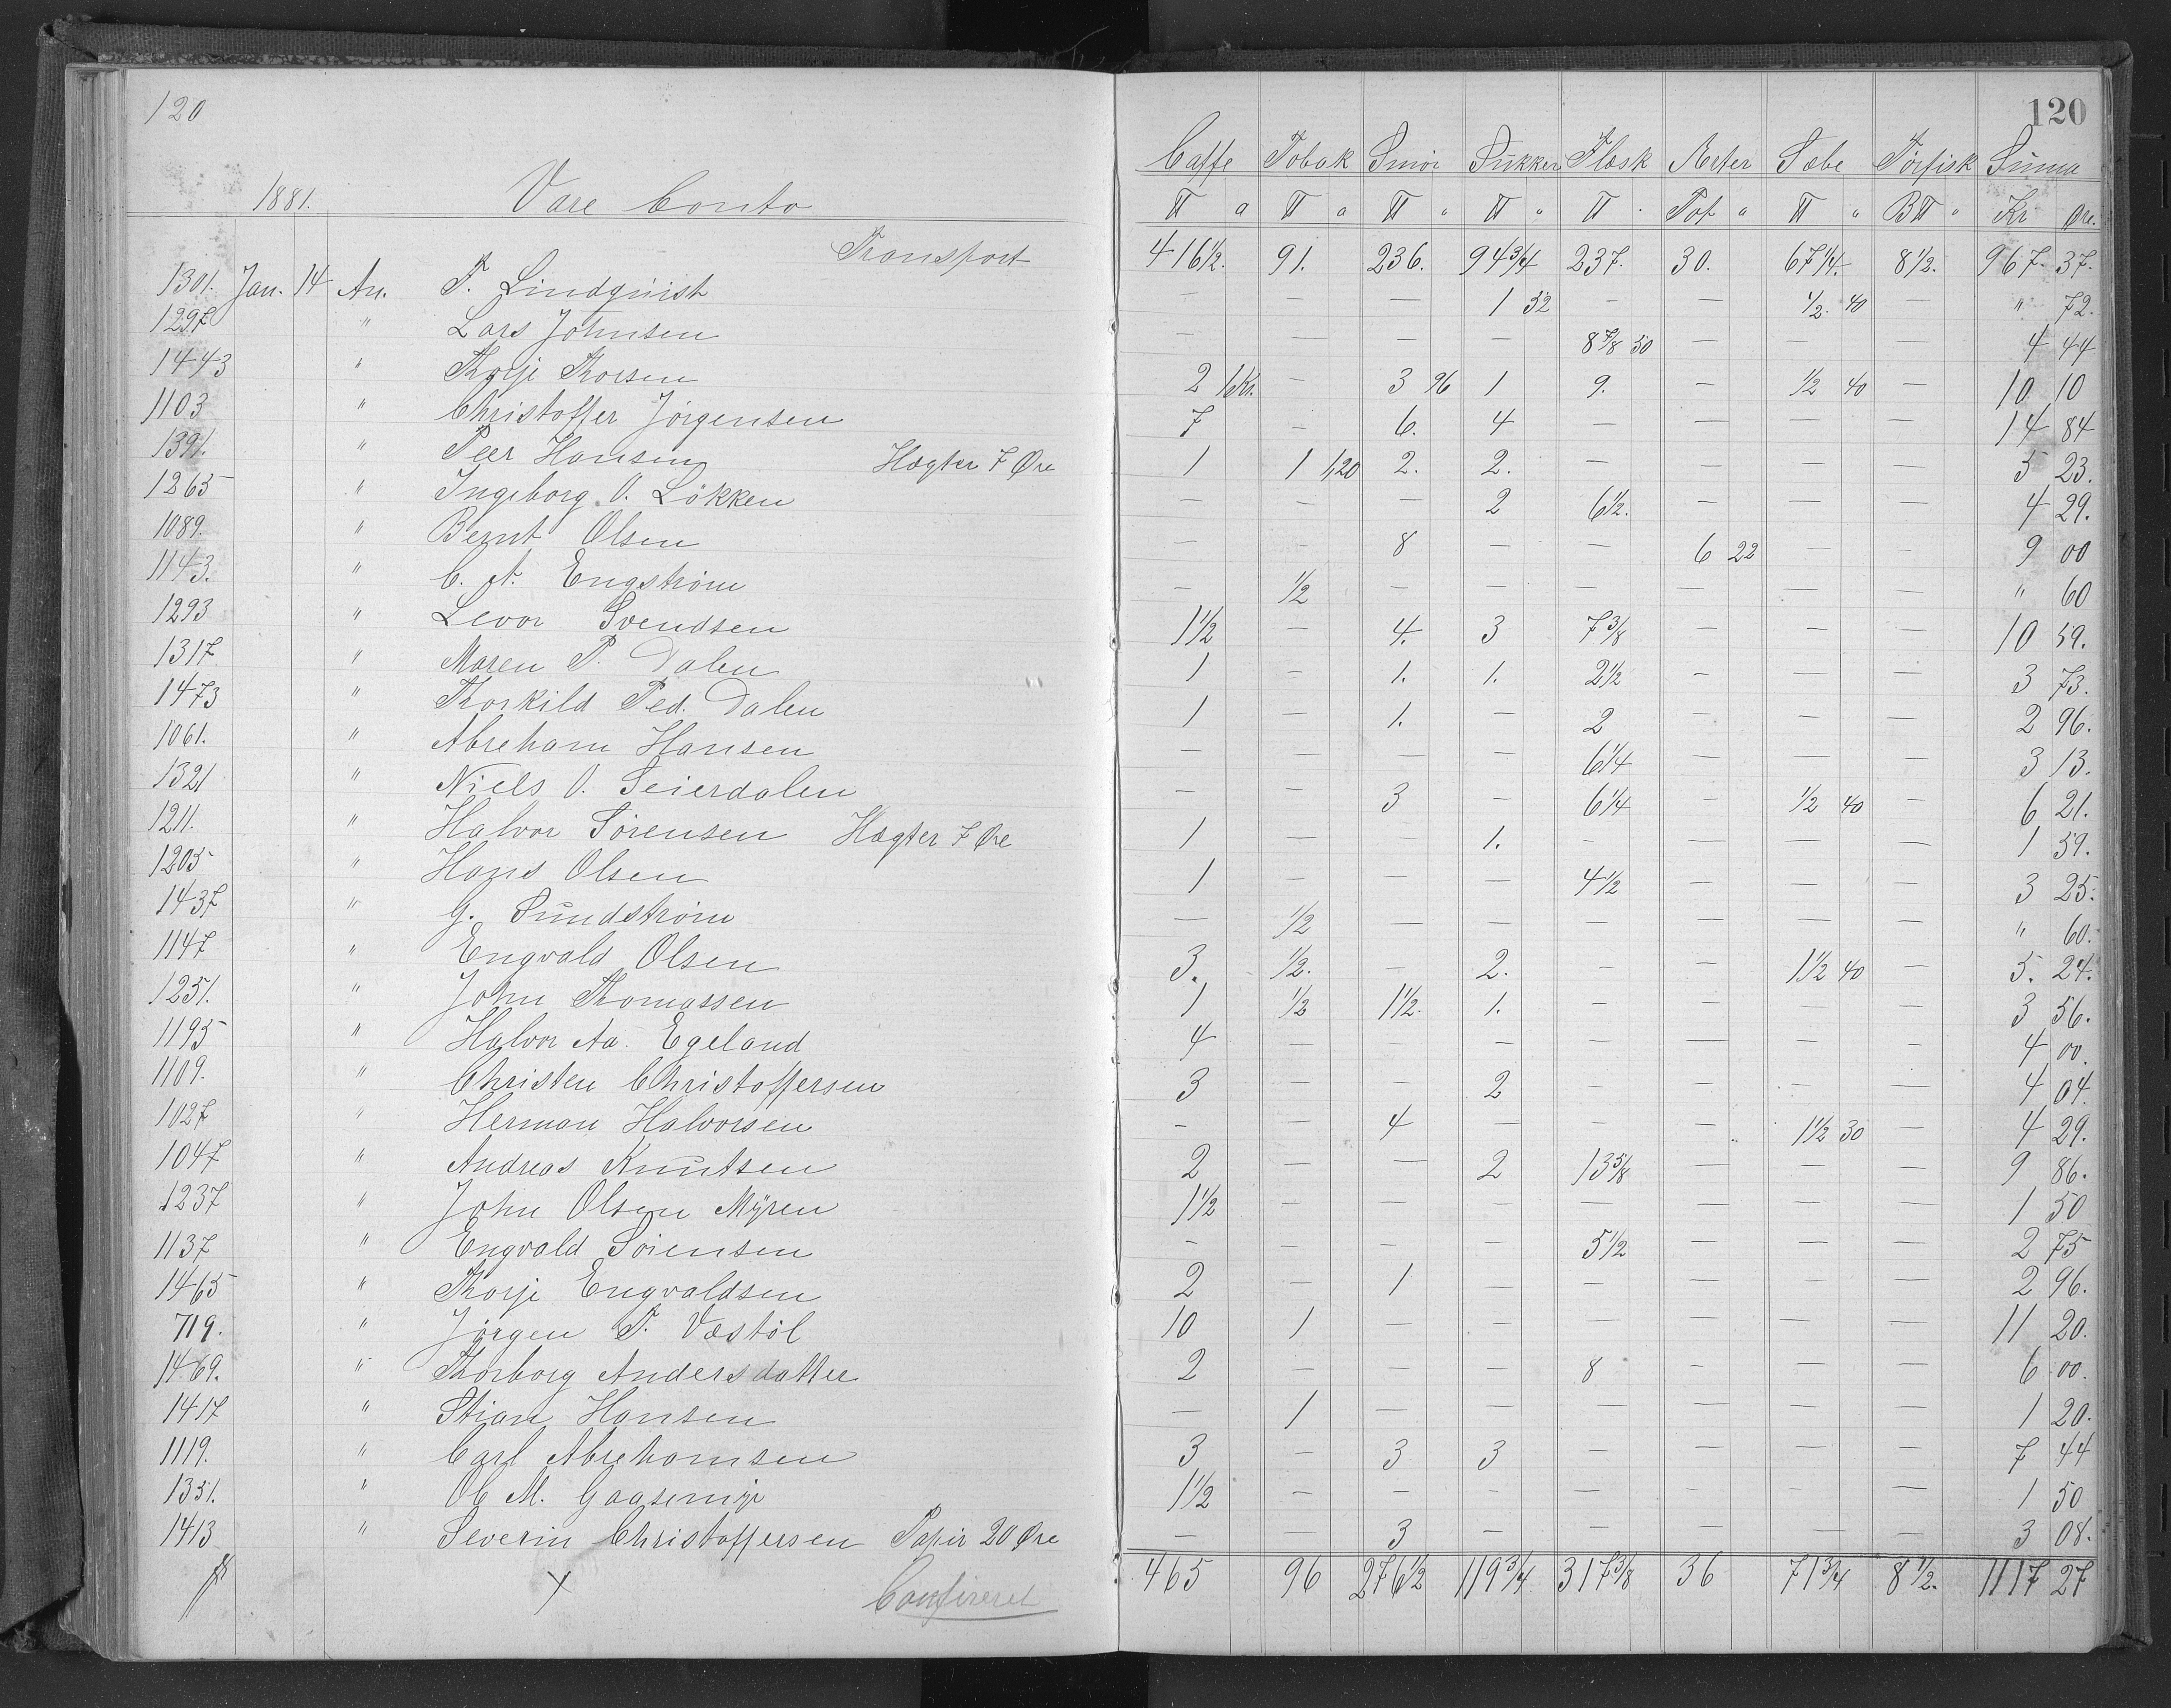 120
120
1881. Vare Conto
Caffe Tobak Smör Sukker Flæsk Ærter Sæbe Törfisk Suma
℔ a ℔ a ℔ " ℔ " ℔ · Pot " ℔ " B℔ " Kr Øre.
Transport 416½. 91. 236. 94¾ 237. 30. 67¼. 8½. 967. 37.
1301. Jan. 14 An. T. Lindquist — — — 1 32 — — ½. 40 — " 72.
1297 " Lars Johnsen — — — — 8⅞ 50 — — — 4 44
1443 " Thorje Thorsen 2 1Kr. — 3 96 1 9. — ½ 40 — 10 10
1103 " Christoffer Jörgensen 7 — 6. 4 — — — — 14 84
1391. " Peer Hansen Hægter 7 Øre 1 1 1,20 2. 2. — — — — 5 23.
1265 " Ingeborg O. Lökken — — — 2 6½. — — — 4 29.
1089. " Bernt Olsen — — 8 — — 6 22 — — 9 00
1143. " C. A. Engström — ½ — — — — — — " 60
1293 " Levor Svendsen 1½ — 4. 3 7⅜ — — — 10 59.
1317. " Maren P. Dalen 1 — 1. 1. 2½ — — — 3 73.
1473 " Thorkild Ped. Dalen 1 — 1. — 2 — — — 2 96.
1061. " Abreham Hansen — — — — 6¼ — — — 3 13.
1321 " Niels O. Seierdalen — — 3 — 6¼ — ½ 40 — 6 21.
1211. " Halvor Sörensen Hægter 7 Øre 1 — — 1. — — — — 1 59.
1205 " Hans Olsen 1 — — — 4½ — — — 3 25.
1437 " G. Sundström — ½ — — — — — — " 60.
1147 " Engvald Olsen 3. ½. — 2. — — 1½ 40 — 5. 24.
1251. " John Thomassen 1 ½ 1½. 1. — — — — 3 56.
1195 " Halvor Aa. Egeland 4 — — — — — — — 4 00.
1109. " Christen Christoffersen 3 — — 2 — — — — 4 04.
1027 " Herman Halvorsen — — 4 — — — 1½ 30 — 4 29.
1047 " Andreas Knutsen 2 — — 2 13⅝ — — — 9 86.
1237 " John Olsen Myren 1½ — — — — — — — 1 50
1137 " Engvald Sörensen — — — — 5½ — — — 2 75
1465 " Thorje Engvaldsen 2 — 1 — — — — — 2 96.
719. " Jörgen T. Væstöl 10 1 — — — — — — 11 20.
1469. " Thorborg Andersdatter 2 — — — 8 — — — 6 00.
1417 " Stian Hansen — 1 — — — — — — 1 20.
1119. " Carl Abrehamsen 3 — 3 3 — — — — 7 44
1351. " Ole M. Gaasemyr 1½ — — — — — — — 1 50
1413 " Severin Christoffersen Papir 20 Øre — — 3 — — — — — 3 08.
465 96 276½ 119¾ 317⅜ 36 71¾ 8½. 1117 27
Confireret